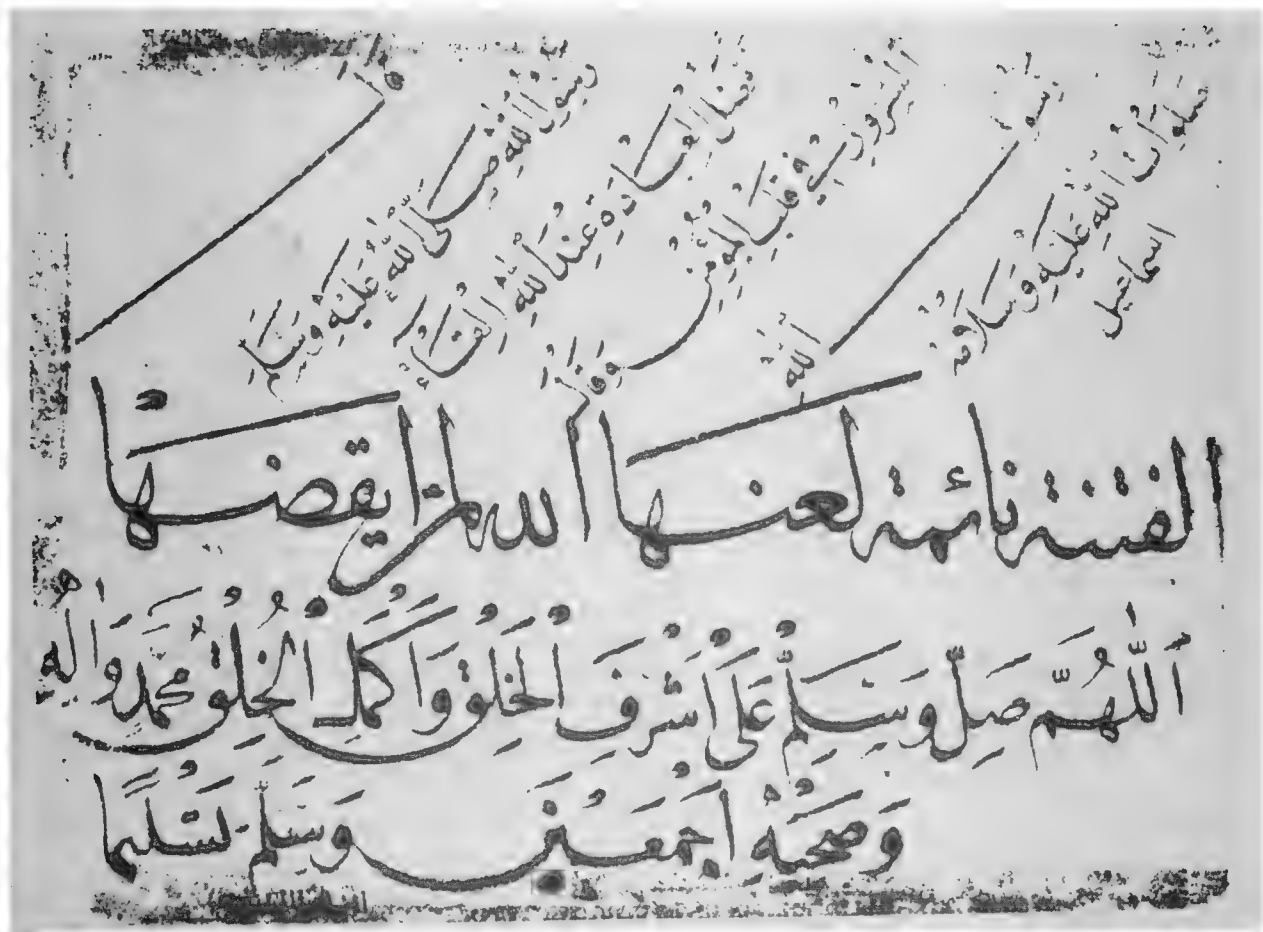 قال
رسول الله صلى الله عليه وسلم
العبادة عند الله
السرور في قلب المؤمن
وقال
رسول
الله
صلوات الله عليه وسلامه
اسماعيل
الفتنة نائمة لعنها الله لمن ايقضها
اَللّٰهُمَّ صَلِّ وَسَلِّمْ عَلَى اَشْرَفِ الْخَلْقِ وَاَكْمَلِ الْخَلْقِ مُحَمَّدٍ وَاٰلِهِ
وَصَحْبِهِ اَجْمَعِينَ وَسَلَّمَ تَسْلِيمًا